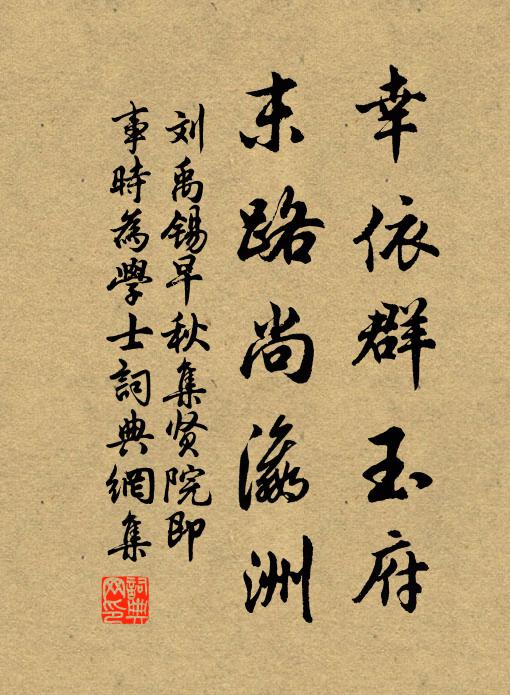 幸依群玉府
末路尚瀛洲
刘禹锡早秋集贤院即
事時為學士詞典網集
詞典网印